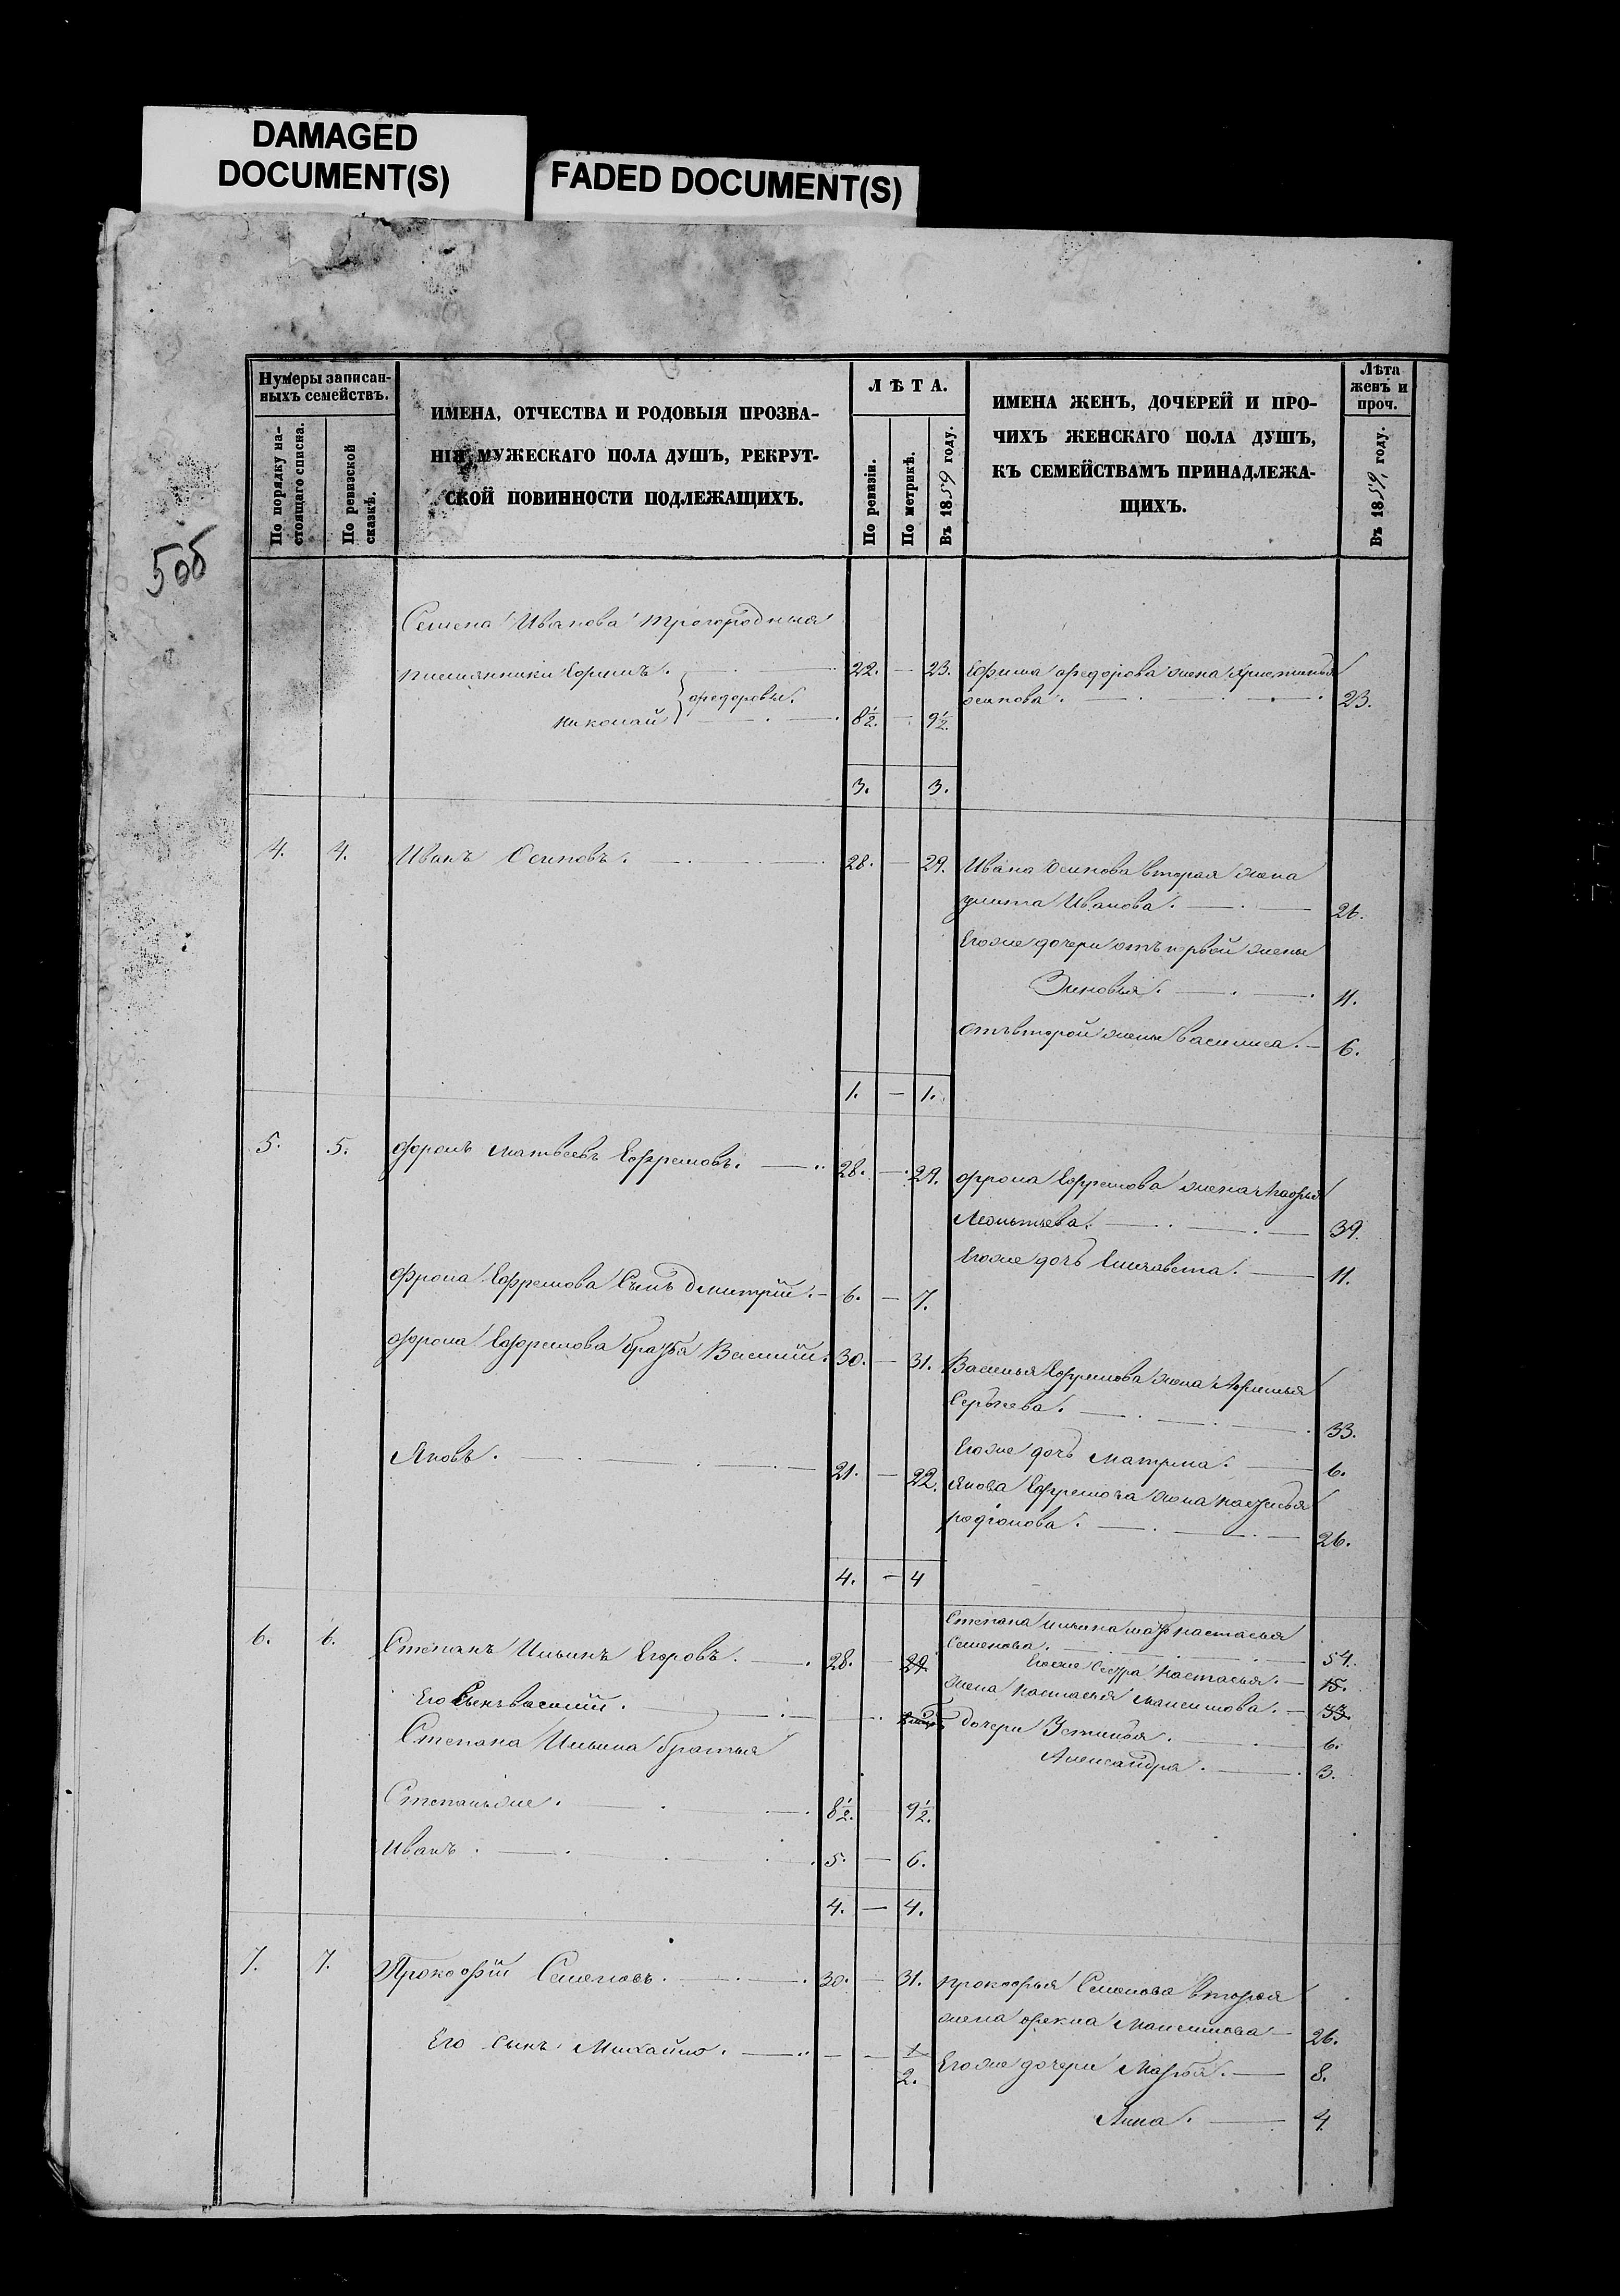 DAMAGED
DOCUMENT(S)
FADED DOCUMENT(S)
Нумеры записан-
ныхъ семействъ.
По порядку на-
стоящаго списка.
По ревизской
сказкѣ.
ИМЕНА, ОТЧЕСТВА И РОДОВЫЯ ПРОЗВА-
НІЯ МУЖЕСКАГО ПОЛА ДУШЪ, РЕКРУТ-
СКОЙ ПОВИННОСТИ ПОДЛЕЖАЩИХЪ.
ЛѢТА.
По ревизіи.
По метрикѣ.
Въ 1859 году.
ИМЕНА ЖЕНЪ, ДОЧЕРЕЙ И ПРО-
ЧИХЪ ЖЕНСКАГО ПОЛА ДУШЪ,
КЪ СЕМЕЙСТВАМЪ ПРИНАДЛЕЖА-
ЩИХЪ.
Лѣта
женъ и
проч.
Въ 1859, году.
5об
Семена Иванова
племянники Ефимъ. 22. — 23. Ефима Федорова жена
Федоровы. осипова. 23.
Николай 8½. — 9½.
3. 3.
4. 4. Иванъ Осиповъ. 28. — 29. Ивана Осипова вторая жена
улита Иванова. 26.
Егоже дочери отъ первой жены
Зиновья. 11.
отъ второй жены Василиса. 6.
1. — 1.
5. 5. Фролъ Матвеевъ Ефремовъ. 28. — 29. Фрола Ефремова жена
Леонтьева. 39.
Егоже дочь Елизавета. 11.
Фрола Ефремова Сынъ Дмитрій. 6. — 7.
Фрола Ефремова братья Василій. 30. — 31. Василья Ефремова жена Афимья
Сергѣева. 33.
Егоже дочь Матрена. 6.
Яковъ. 21. — 22. Якова Ефремова жена настасья
родіонова. 26.
4. — 4
6. 6. Степанъ Ильинъ Егоровъ. 28. — 29. Степана ильина мать настасья
Семенова. 54.
Егоже Сестра Настасья. 15.
жена настасья максимова. 33.
Его Сынъ василий. дочери Устинья. 6.
Степана Ильина братья Александра. 3.
Степанъ же. 8½. 9½.
иванъ. 5. — 6.
4. — 4.
7. 7. Прокофій Семеновъ. 30. — 31. прокофья Семенова вторая
жена фекла Максимова 26.
Его сынъ Михайло. 2. Егоже дочери Марья. 8.
Анна. 4.